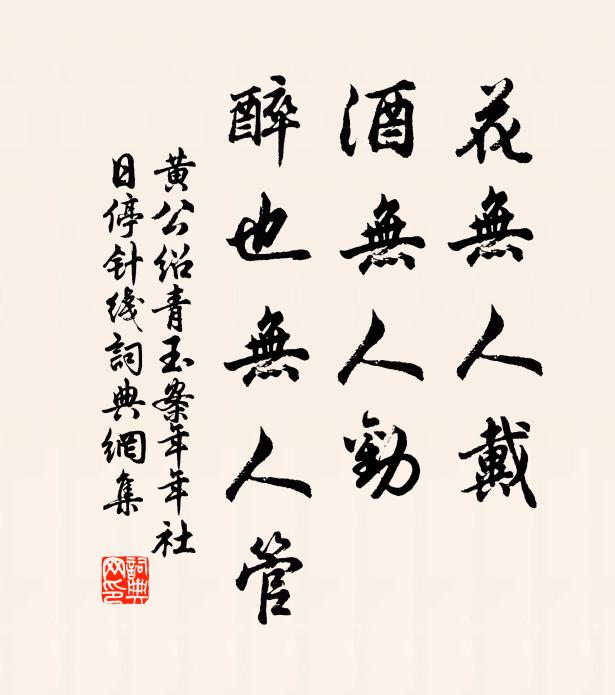 花無人戴
酒無人勸
醉也無人管
黄公紹青玉案年年社
日停针线詞典網集
詞典
网印